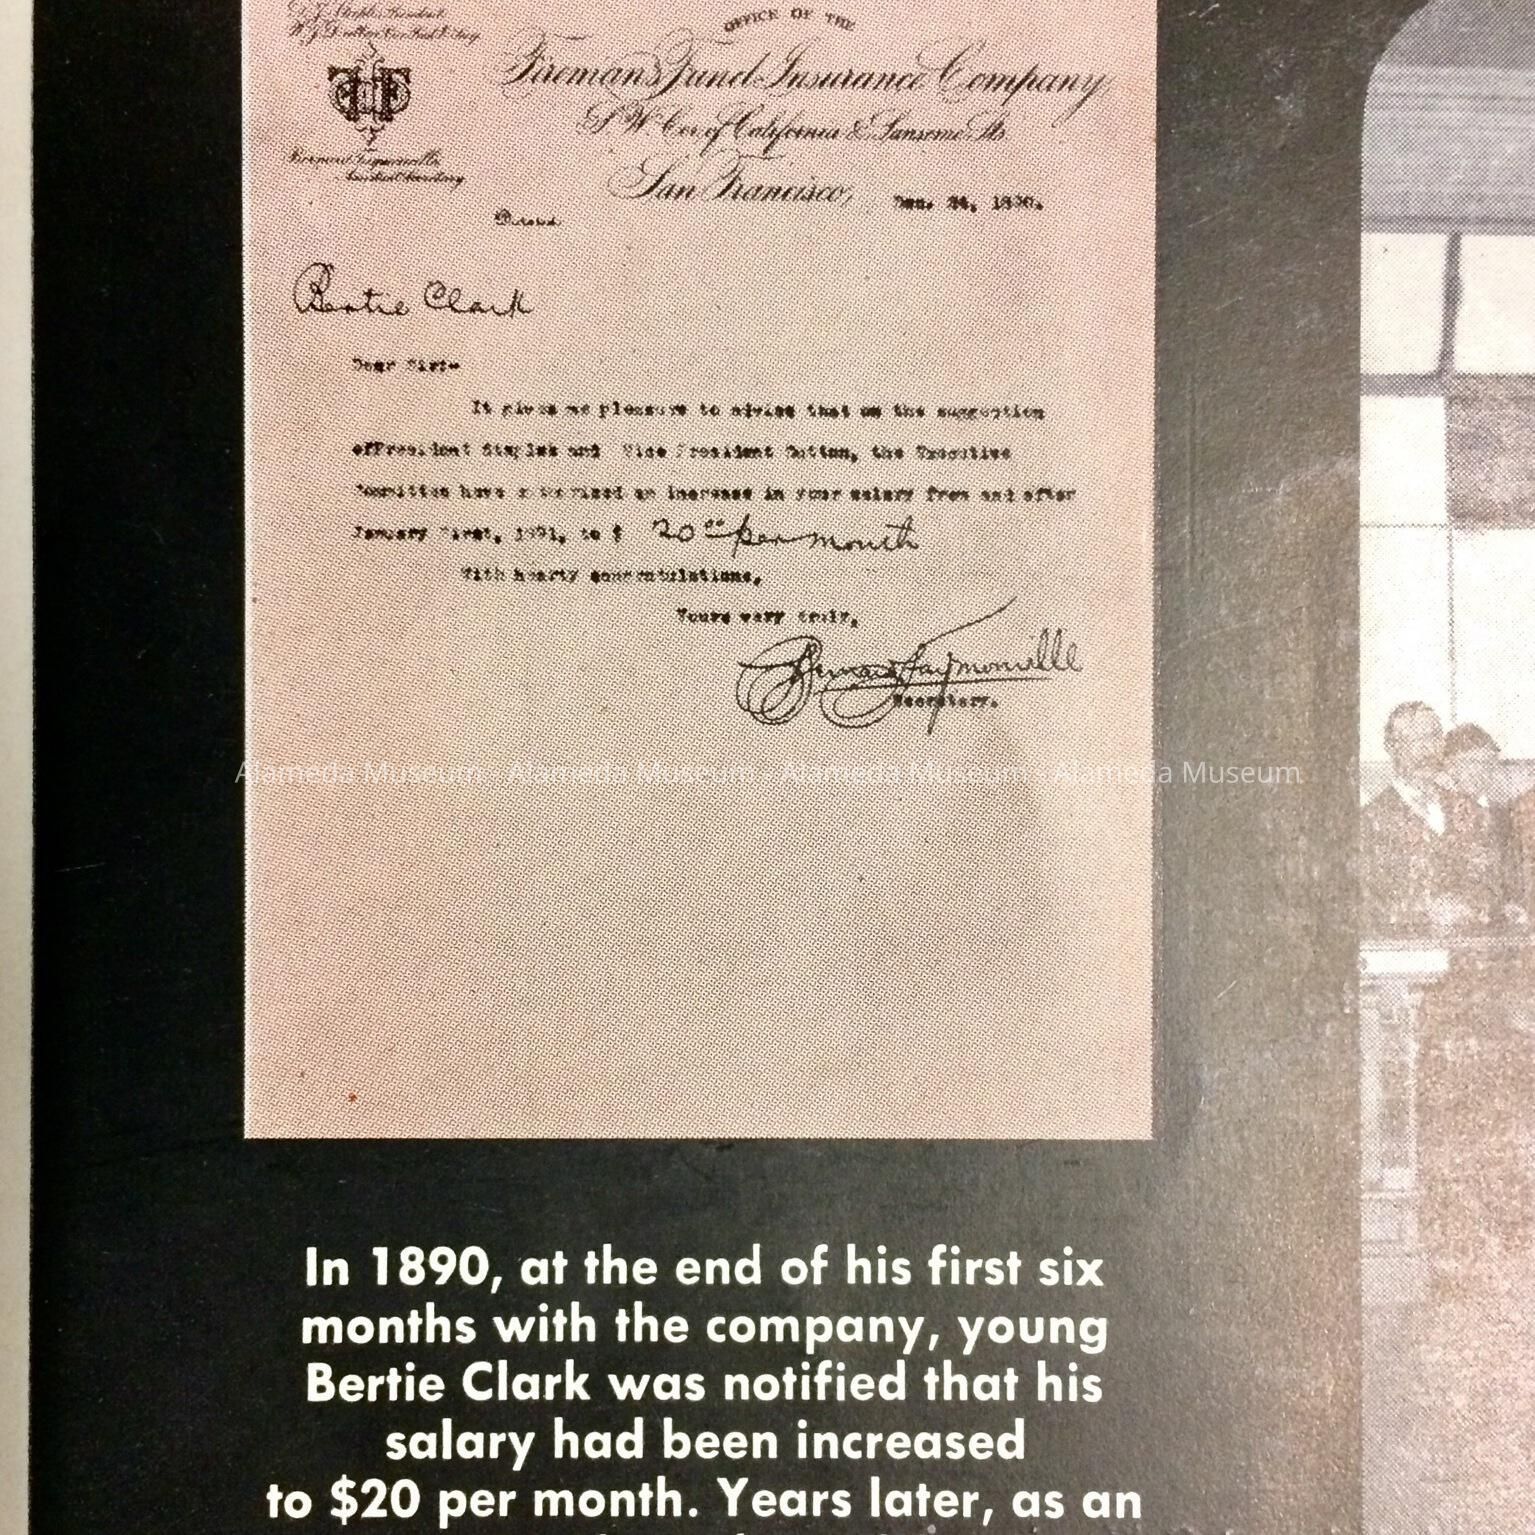 D. J. Staples, President.
OFFICE OF THE
Fireman's Fund Insurance Company,
S. W. Cor. of California & Sansome Sts.
San Francisco, Dec. 24, 1890.
Bertie Clark
Dear Sir:-
It gives me pleasure to advise that on the suggestion
ofPresident Staples and Vice President Dutton, the Executive
Committee have authorized an increase in your salary from and after
January first, 1891, to $ 20 00 per month
With hearty congratulations,
Yours very truly,
Bernard Faymonville
Secretary.
Alameda Museum - Alameda Museum - Alameda Museum - Alameda Museum
In 1890, at the end of his first six
months with the company, young
Bertie Clark was notified that his
salary had been increased
to $20 per month. Years later, as an